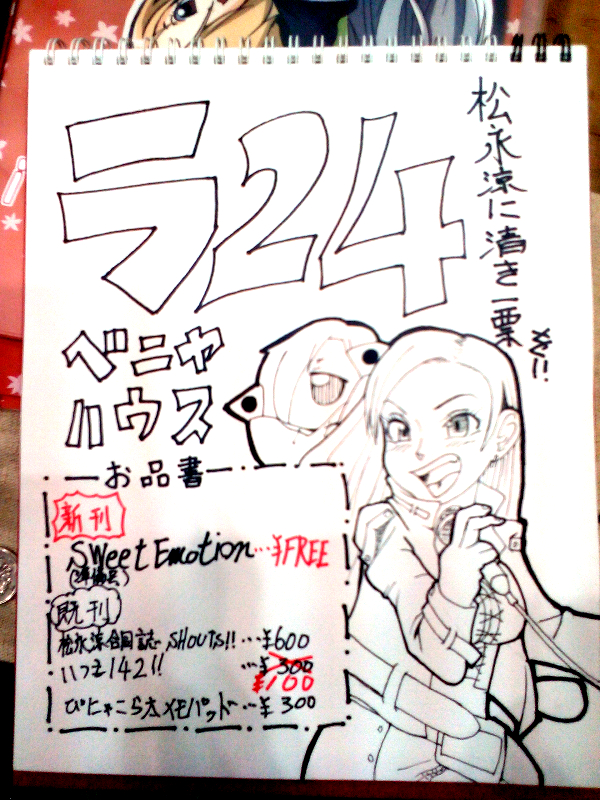 ラ24
松永涼に清き一票
を!!
ベニヤ
ハウス
お品書
新刊
Sweet Emotion…¥FREE
(準備号)
既刊
松永涼合同誌 SHOUTS!!…¥600
いつも142!!…¥300
¥100
ぴにゃこら太メモパッド…¥300